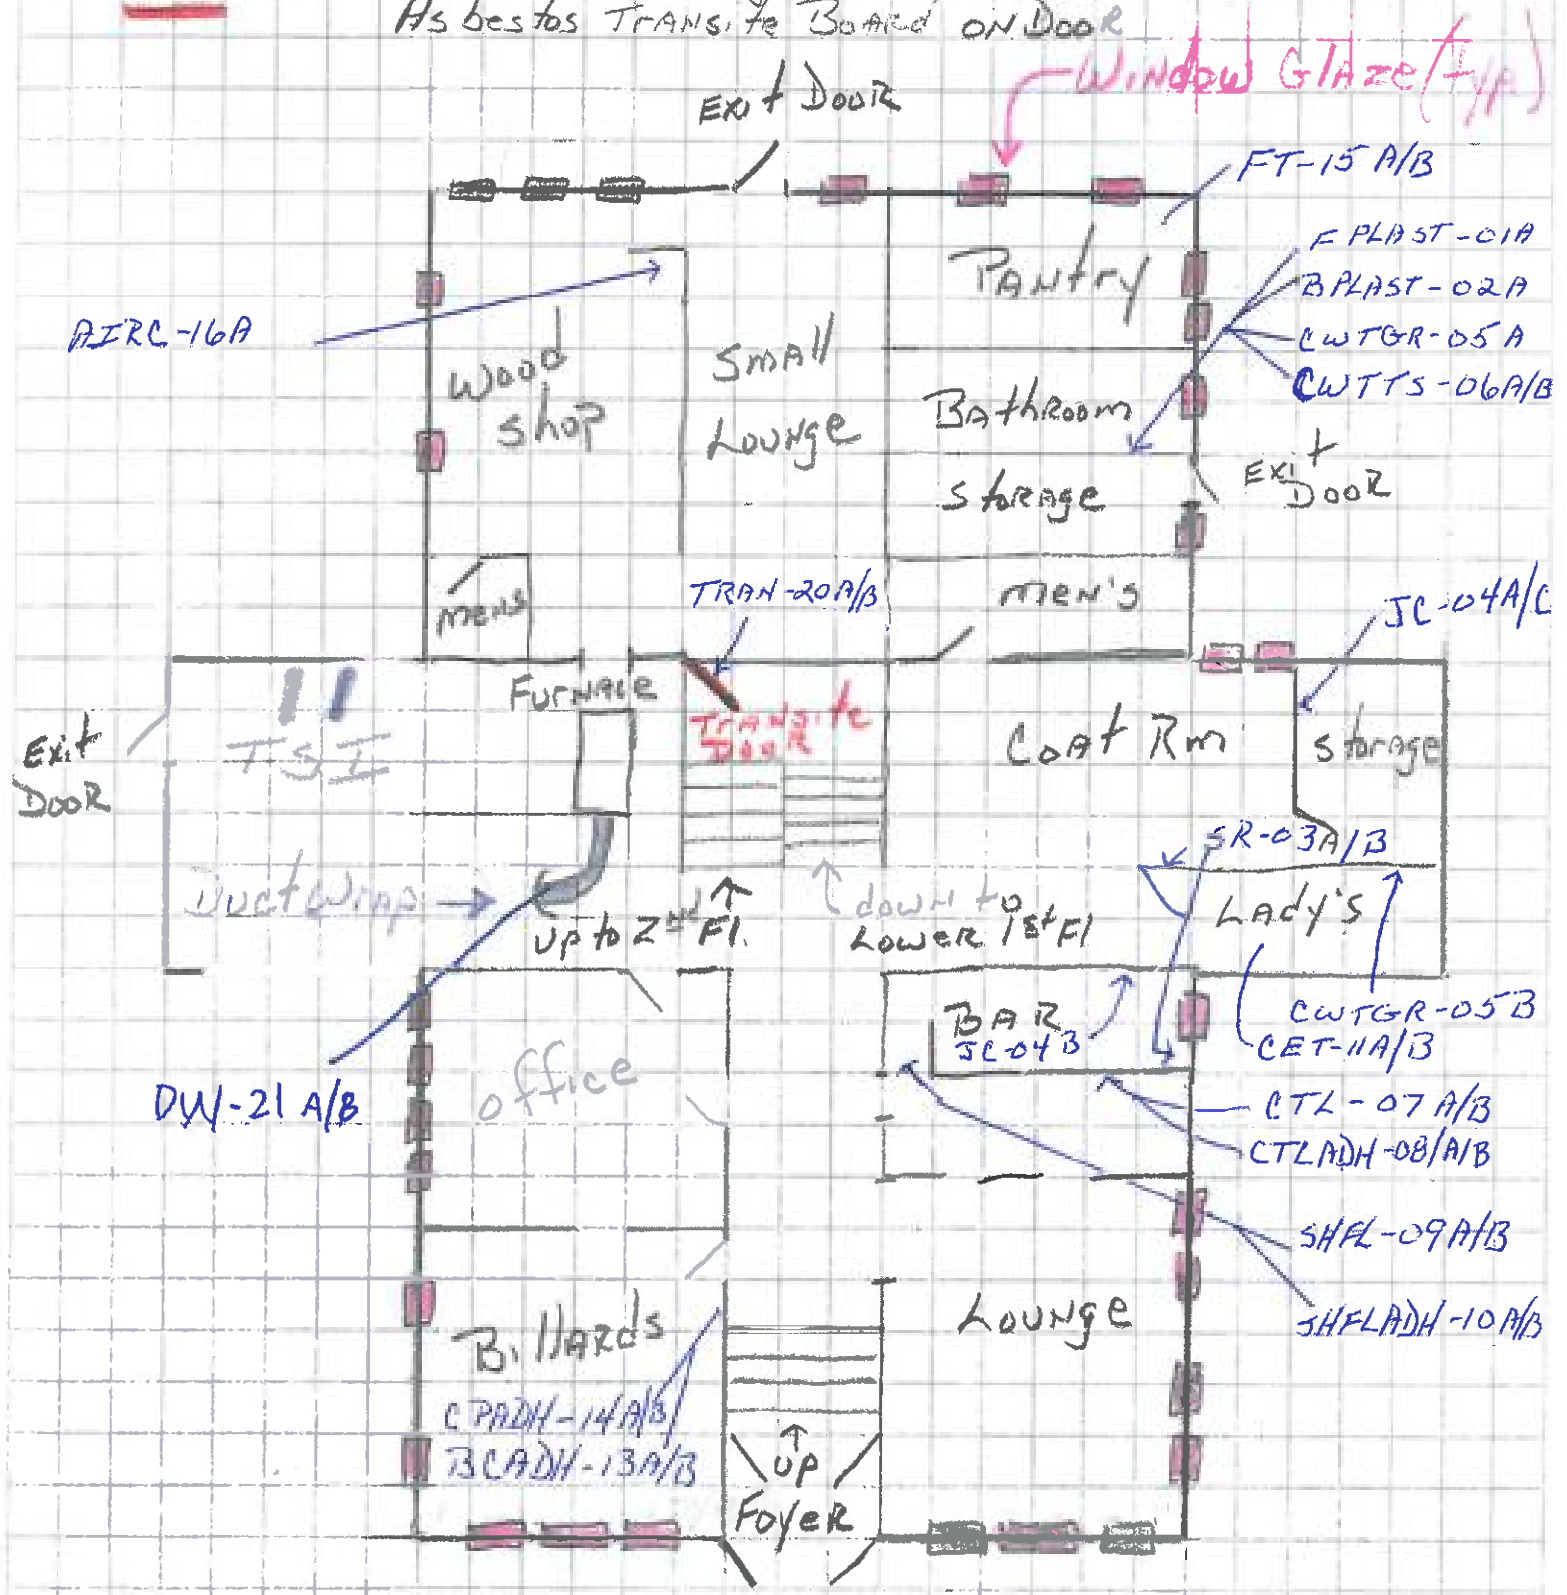 Asbestos Transite Board on Door
Window Glaze (typ)
Exit Door
FT-15 A/B
FPLAST-01A
BPLAST-02A
CWTGR-05A
CWTTS-06A/B
AIRC-16A
Pantry
Wood
Shop
Small
Lounge
Bathroom
Storage
Exit
Door
Mens
TRAN-20A/B
Men's
JC-04A/C
Furnace
Transite
Door
Coat Rm
Storage
TSI
Exit
Door
SR-03A/B
Duct Wrap
Up to 2nd Fl.
down to
Lower 1st Fl
Lady's
BAR
JC-04B
CWTGR-05B
CET-11A/B
Office
DW-21 A/B
CTL-07 A/B
CTLADH-08/A/B
SHFL-09A/B
SHFLADH-10A/B
Billards
Lounge
CPADH-14A/B
BCADH-13A/B
UP
Foyer